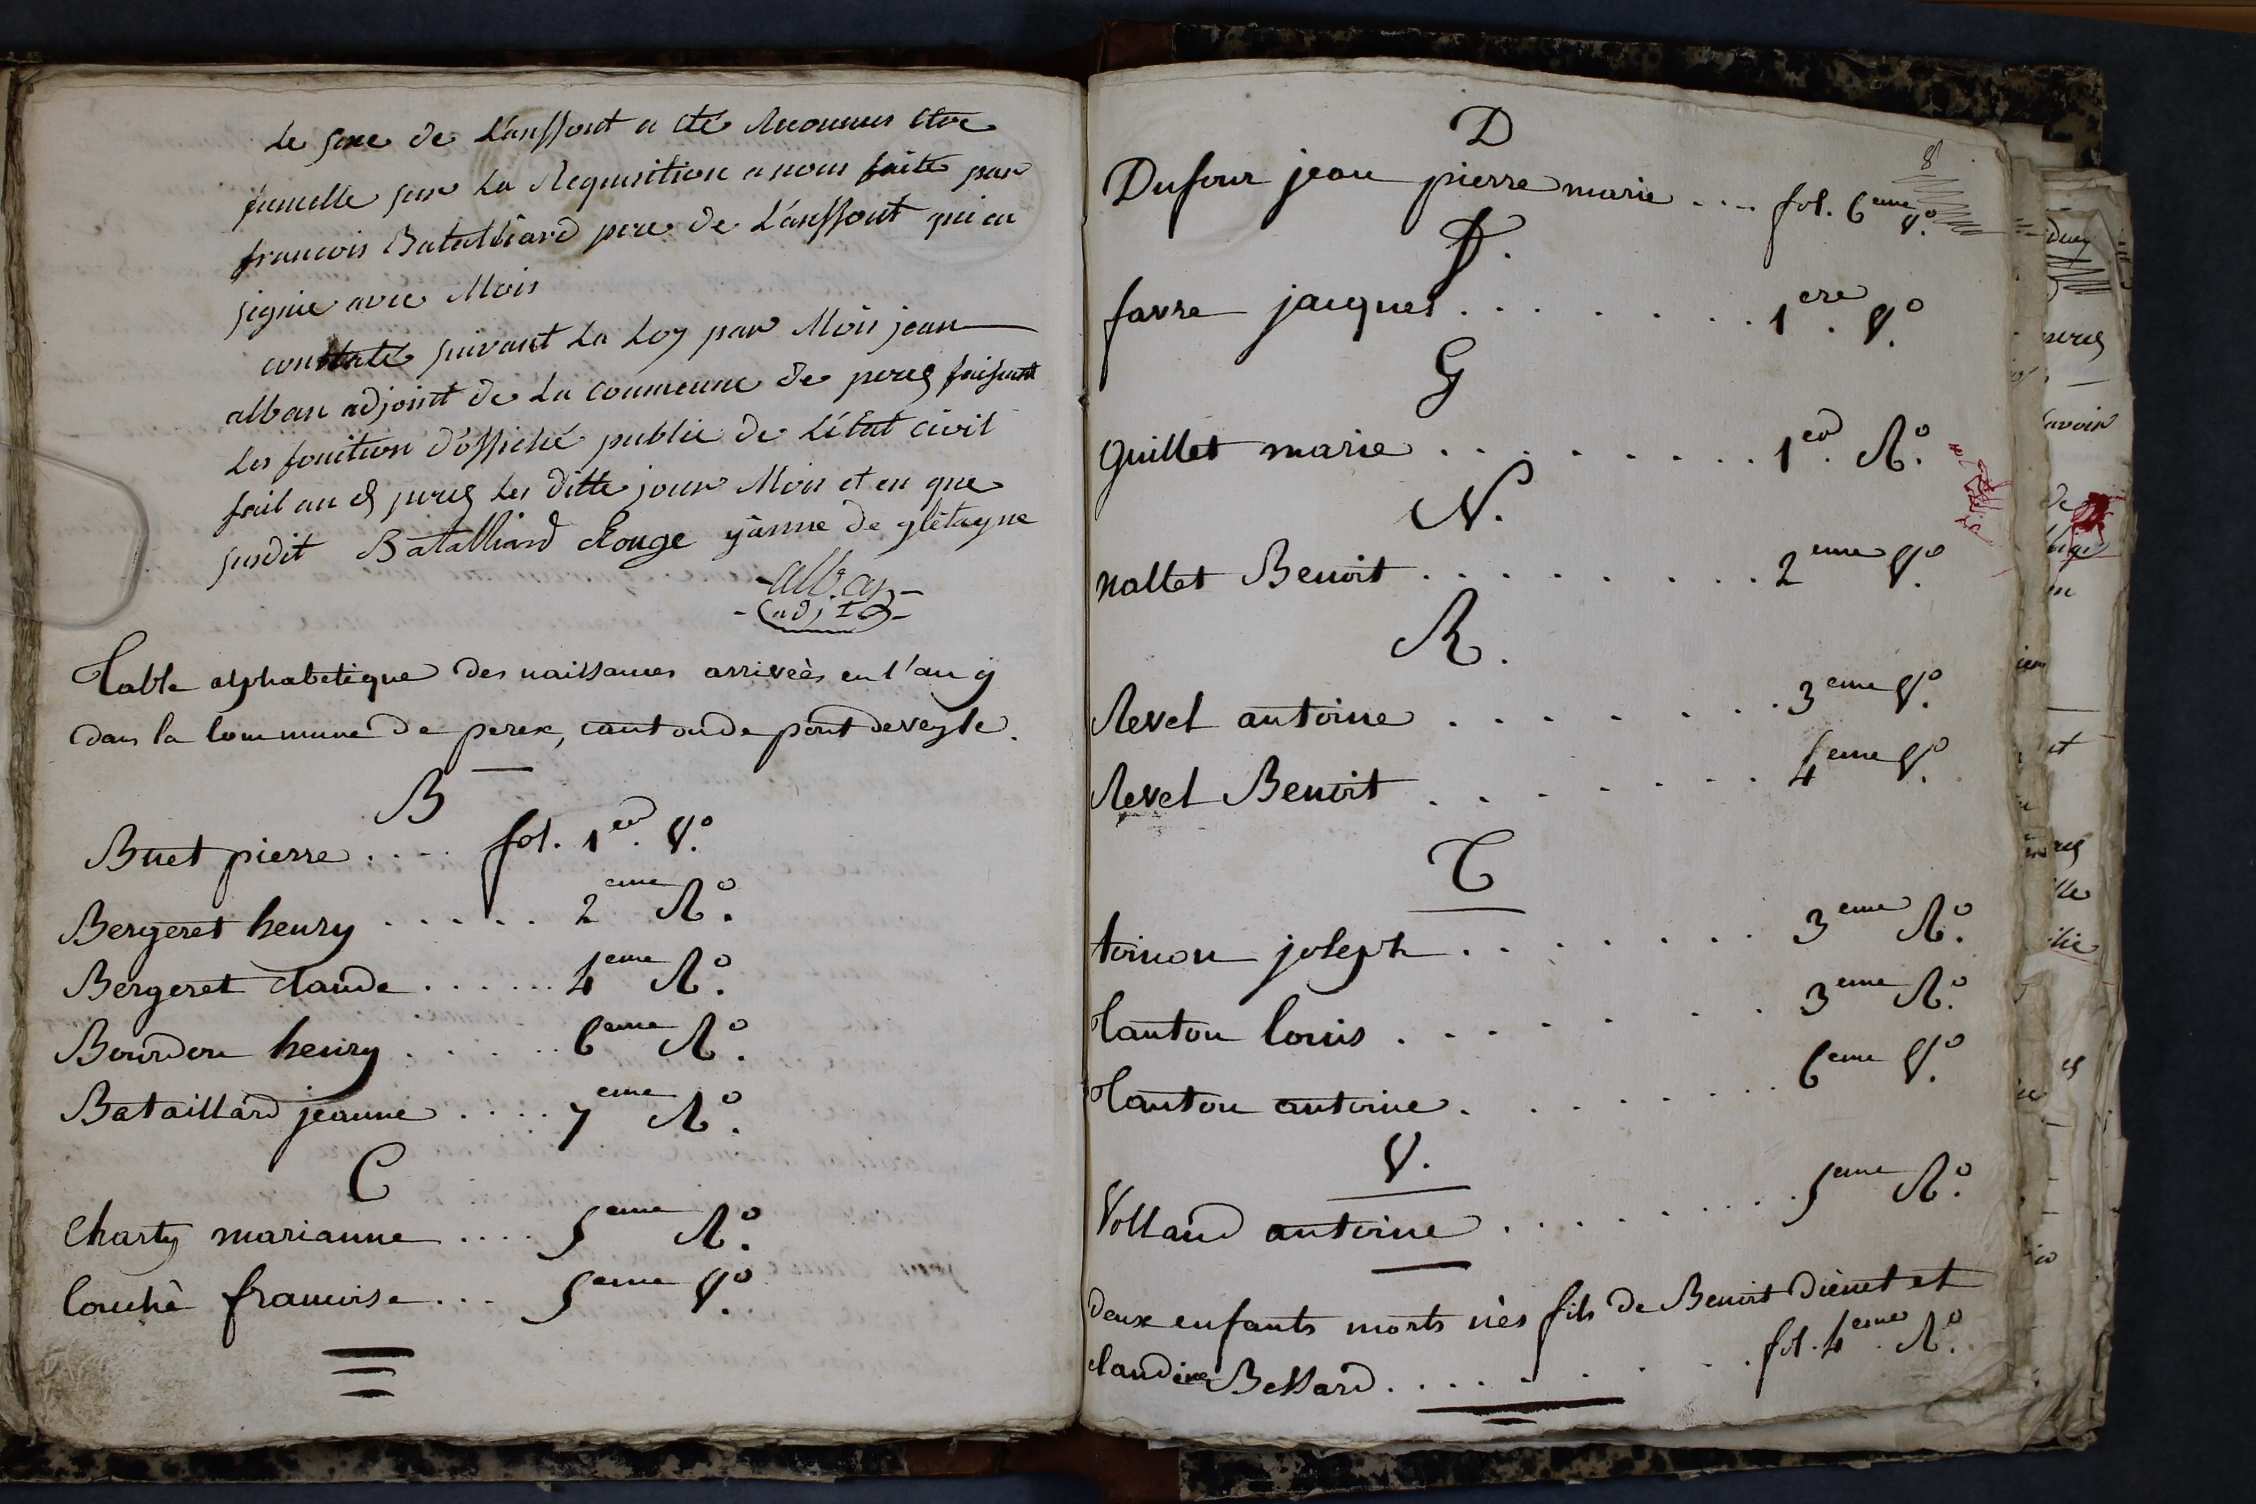 Le sexe de L'anffont a eté Reconnus etre
fumelle sur La Requisition a nous faite par
francois Batalliard pere de L'anffont qui a
signie avec Mois
constaté suivant La Loy par Mois jean
alban adjoint de La Commeune de perex faisant
Les fonition d'officié public de L'état civil
fait au d perex Les ditte jour Mois et en que
susdit Batalliard Rouge yanne de glétagne
alban
adjt
Table alphabetique des naissances arriveès en l'an 9
dans la Commune de perex, canton de pont deveyle.
B
Buet pierre .... fol. 1er. V°.
Bergeret henry ..... 2eme R°.
Bergeret claude ...... 4eme R°.
Bourdon henry ..... 6eme R°.
Bataillard jeanne .... 7eme R°.
C
Charty marianne .... 5eme R°.
Couchè francoise ... 5eme V°.
8
D
Dufour jean pierre marie .... fol. 6eme V°.
F.
favre jacques ........ 1ere. V°.
G
Guillet marie ......... 1er. R°.
N.
Nallet Benoit ......... 2eme V°.
R.
Revel antoine ........ 3eme V°.
Revel Benoit ........ 4eme V°.
T
toinon joseph ........ 3eme R°.
Tanton Louis ....... 3eme R°.
Tanton antoine ....... 6eme V°.
V.
Volland antoine ......... 5eme R°.
deux enfants morts nès fils de Benoit Diènet et
Claudine Bessard ........ fol. 4eme. R°.